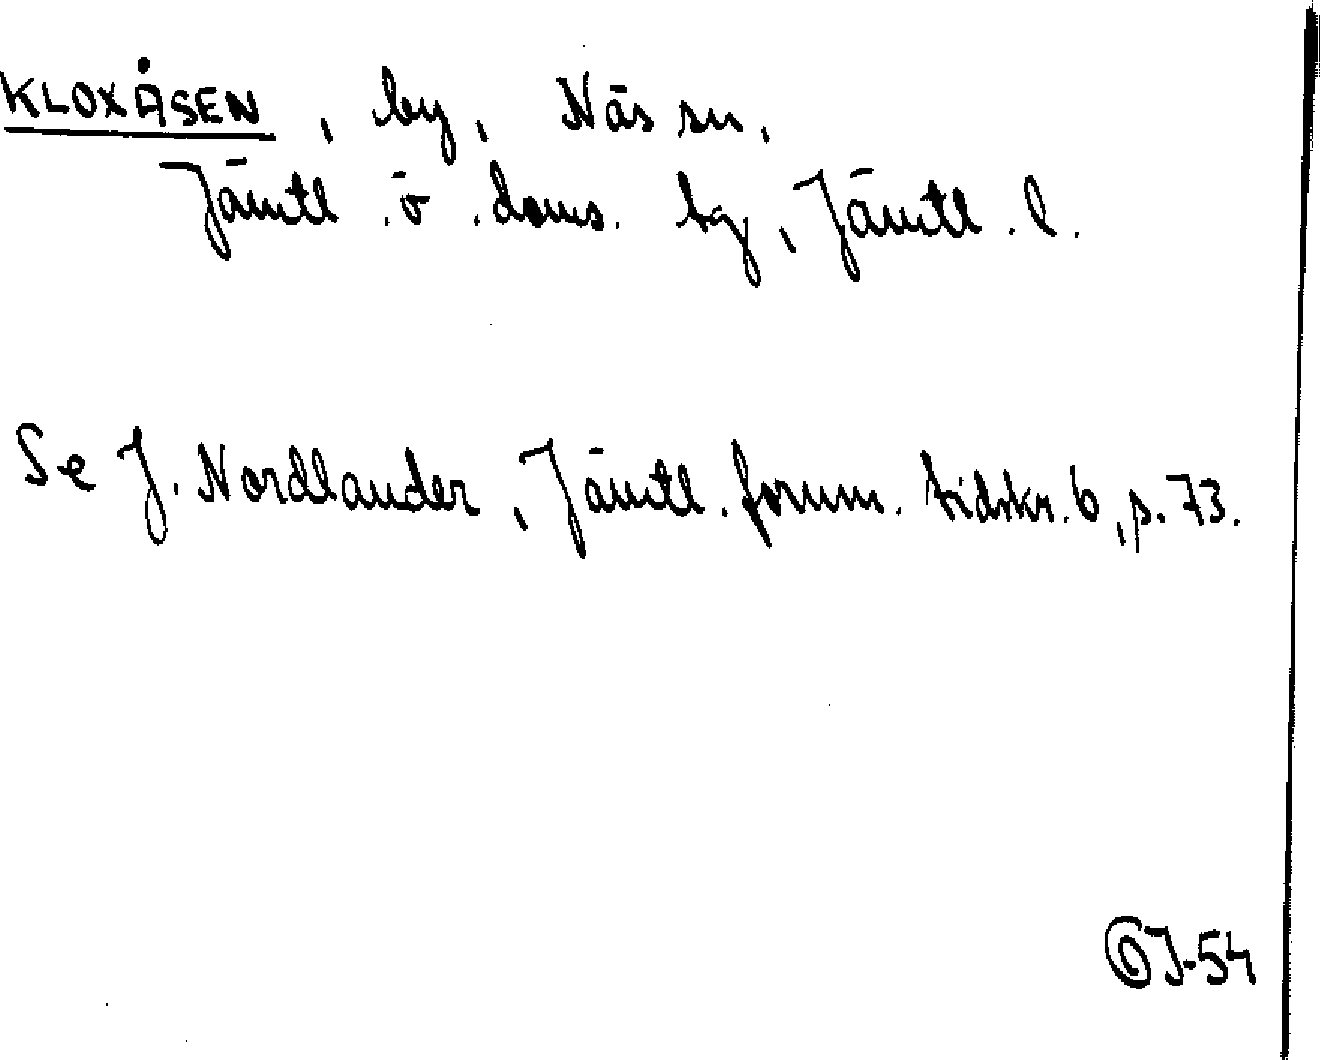 KLOXÅSEN, by, Näs sn,
Jämtl. ö. doms. tg, Jämtl. l.
Se J. Nordlander, Jämtl. fornm. tidskr. 6, s. 73.
GJ-54